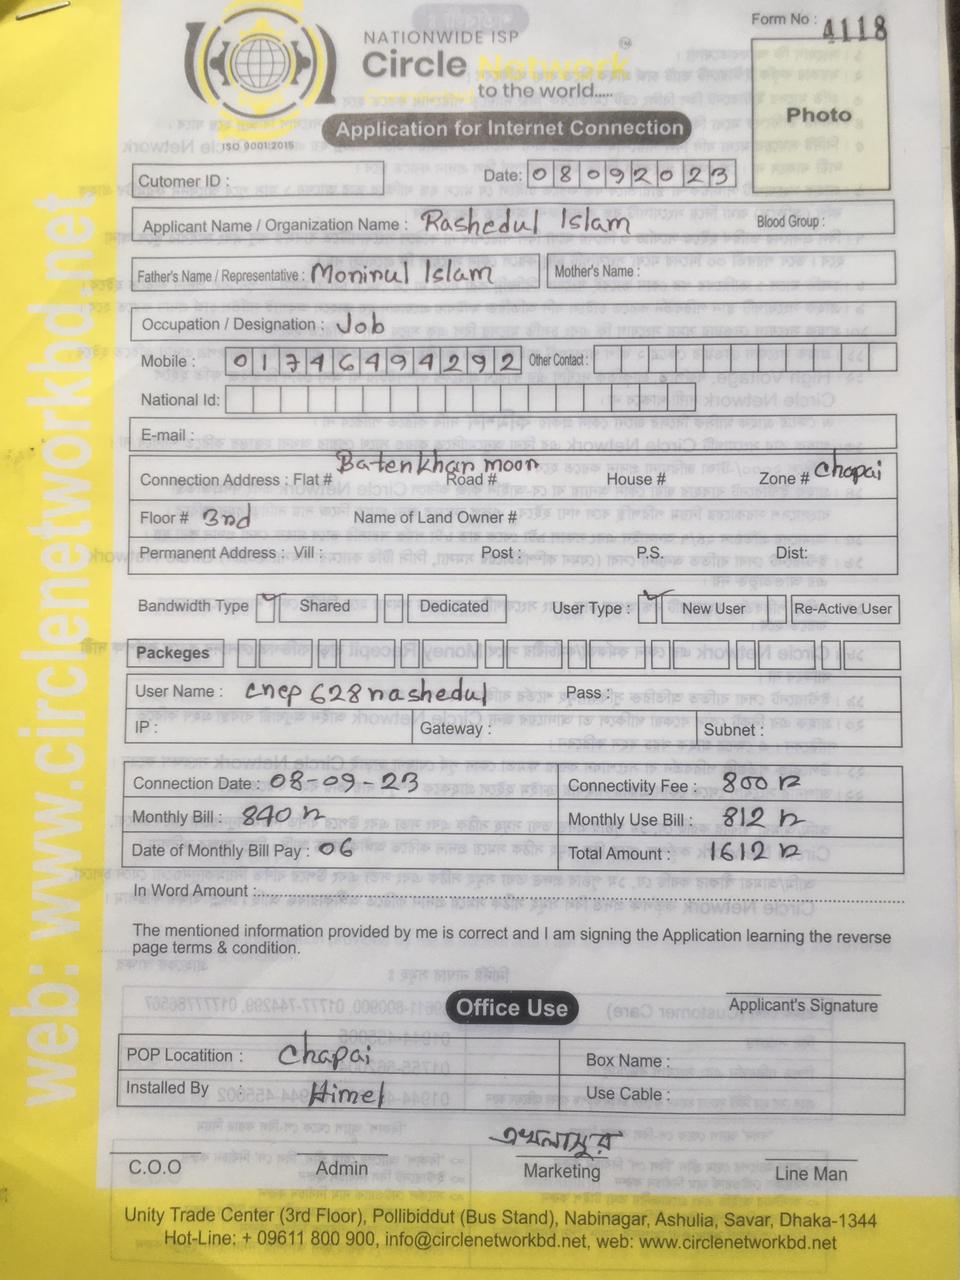 Form No : 4118
NATIONWIDE ISP
Circle Network
Connected to the world.....
ISO 9001:2015
Photo
Application for Internet Connection
Cutomer ID :
Date: 08092023
Applicant Name / Organization Name : Rashedul Islam Blood Group :
Father's Name / Representative : Moninul Islam Mother's Name :
Occupation / Designation : Job
Mobile : 01746494292 Other Contact :
National Id:
E-mail :
Connection Address : Flat # Batenkhan moon Road # House # Zone # Chapai
Floor # 3nd Name of Land Owner #
Permanent Address : Vill : Post : P.S. Dist:
Bandwidth Type ✓ Shared Dedicated User Type : ✓ New User Re-Active User
Packeges
User Name : cnep628nashedul Pass :
IP : Gateway : Subnet :
Connection Date : 08-09-23 Connectivity Fee : 800
Monthly Bill : 840 Monthly Use Bill : 812
Date of Monthly Bill Pay : 06 Total Amount : 1612
In Word Amount :
The mentioned information provided by me is correct and I am signing the Application learning the reverse
page terms & condition.
Applicant's Signature
Office Use
POP Locatition : Chapai Box Name :
Installed By : Himel Use Cable :
C.O.O Admin Marketing Line Man
Unity Trade Center (3rd Floor), Pollibiddut (Bus Stand), Nabinagar, Ashulia, Savar, Dhaka-1344
Hot-Line: + 09611 800 900, info@circlenetworkbd.net, web: www.circlenetworkbd.net
web: www.circlenetworkbd.net